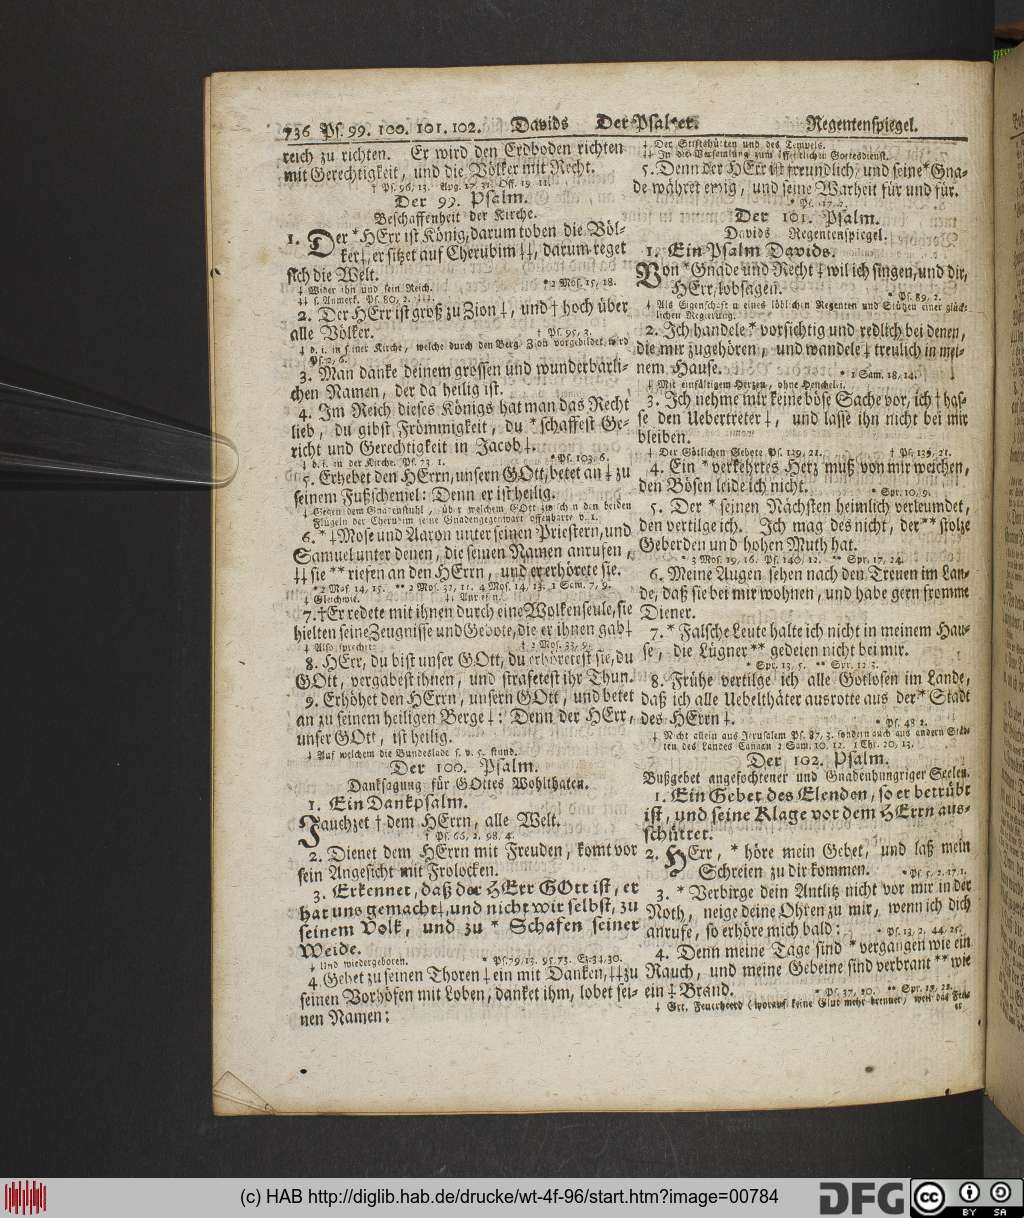 736 Ps. 99. 100. 101. 102. Davids Der Psalter. Regentenspiegel.
reich zu richten. Er wird den Erdboden richten
mit Gerechtigkeit, und die Völker mit Recht.
† Ps. 96, 13. Apg. 17, 31. Off. 19, 11.
Der 99. Psalm.
Beschaffenheit der Kirche.
1. Der * HErr ist König, darum toben die Völ-
ker‡, er sitzet auf Cherubim ‡‡, darum reget
sich die Welt. * 2 Mos. 15, 18.
‡ Wider ihn und sein Reich.
‡‡ s. Anmerk. Ps. 80, 2.
2. Der HErr ist groß zu Zion ‡, und † hoch über
alle Völker. † Ps. 95, 3.
‡ d. i. in seiner Kirche, welche durch den Berg Zion vorgebildet wird
Ps. 2, 6.
3. Man danke deinem grossen und wunderbarli-
chen Namen, der da heilig ist.
4. Im Reich dieses Königs hat man das Recht
lieb, du gibst Frömmigkeit, du * schaffest Ge-
richt und Gerechtigkeit in Jacob ‡.
‡ d. i. in der Kirche. Ps. 73, 1. * Ps. 103, 6.
5. Erhebet den HErrn, unsern GOtt, betet an ‡ zu
seinem Fußschemel: Denn er ist heilig.
‡ Gegen dem Gnadenstuhl, über welchem GOtt zwischen den beiden
Flügeln der Cherubim seine Gnadengegenwart offenbarte v. 1.
6. * ‡ Mose und Aaron unter seinen Priestern, und
Samuel unter denen, die seinen Namen anrufen,
‡‡ sie ** riefen an den HErrn, und er erhörete sie.
* 2 Mos. 14, 15. ** 2 Mos. 32, 11. 4 Mos. 14, 13. 1 Sam. 7, 9.
‡ Gleichwie.
7. † Er redete mit ihnen durch eine Wolkenseule, sie
hielten seine Zeugnisse und Gebote, die er ihnen gab‡
‡ Also sprechet: † 2 Mos. 33, 9.
8. HErr, du bist unser GOtt, du erhöretest sie, du
GOtt, vergabest ihnen, und strafetest ihr Thun.
9. Erhöhet den HErrn, unsern GOtt, und betet
an zu seinem heiligen Berge ‡: Denn der HErr,
unser GOtt, ist heilig.
‡ Auf welchem die Bundeslade s. v. 5. stund.
Der 100. Psalm.
Danksagung für GOttes Wohlthaten.
1. Ein Dankpsalm.
Jauchzet † dem HErrn, alle Welt.
† Ps. 66, 2. 98, 4.
2. Dienet dem HErrn mit Freuden, komt vor
sein Angesicht mit Frolocken.
3. Erkennet, daß der HErr GOtt ist, er
hat uns gemacht‡, und nicht wir selbst, zu
seinem Volk, und zu * Schafen seiner
Weide.
‡ Und wiedergeboren. * Ps. 79, 13. 95, 7. Ez. 34, 30.
4. Gehet zu seinen Thoren ‡ ein mit Danken, ‡‡ zu
seinen Vorhöfen mit Loben, danket ihm, lobet sei-
nen Namen:
‡ Der Stiftshütten und des Tempels.
‡‡ In die Versamlung zum öffentlichen Gottesdienst.
5. Denn der HErr ist freundlich, und seine * Gna-
de währet ewig, und seine Warheit für und für.
* Ps. 117, 2.
Der 101. Psalm.
Davids Regentenspiegel.
1. Ein Psalm Davids.
Von * Gnade und Recht ‡ wil ich singen, und dir,
HErr, lobsagen. * Ps. 89, 2.
‡ Als Eigenschaft u eines löblichen Regenten und Stützen einer glück-
lichen Regierung.
2. Ich handele * vorsichtig und redlich bei denen,
die mir zugehören, und wandele ‡ treulich in mei-
nem Hause. * 1 Sam. 18, 14.
‡ Mit einfältigem Herzen, ohne Heuchelei.
3. Ich nehme mir keine böse Sache vor, ich † has-
se den Uebertreter ‡, und lasse ihn nicht bei mir
bleiben.
‡ Der Götlichen Gebote Ps. 119, 21. † Ps. 139, 21.
4. Ein * verkehrtes Herz muß von mir weichen,
den Bösen leide ich nicht. * Spr. 10, 9.
5. Der * seinen Nächsten heimlich verleumdet,
den vertilge ich. Ich mag des nicht, der ** stolze
Geberden und hohen Muth hat.
* 3 Mos. 19, 16. Ps. 140, 12. ** Spr. 17, 24.
6. Meine Augen sehen nach den Treuen im Lan-
de, daß sie bei mir wohnen, und habe gern fromme
Diener.
7. * Falsche Leute halte ich nicht in meinem Hau-
se, die Lügner ** gedeien nicht bei mir.
* Spr. 13, 5. ** Spr. 12, 3.
8. Frühe vertilge ich alle Gotlosen im Lande,
daß ich alle Uebelthäter ausrotte aus der * Stadt
des HErrn ‡. * Ps. 48, 2.
‡ Nicht allein aus Jerusalem Ps. 87, 3. sondern auch aus andern Städ-
ten des Landes Canaan 2 Sam. 10, 12. 1 Chr. 20, 13.
Der 102. Psalm.
Bußgebet angefochtener und Gnadenhungriger Seelen.
1. Ein Gebet des Elenden, so er betrübt
ist, und seine Klage vor dem HErrn aus-
schüttet.
2. HErr, * höre mein Gebet, und laß mein
Schreien zu dir kommen. * Ps. 5, 2. 17, 1.
3. * Verbirge dein Antlitz nicht vor mir in der
Noth, neige deine Ohren zu mir, wenn ich dich
anrufe, so erhöre mich bald: * Ps. 13, 2. 44, 25.
4. Denn meine Tage sind * vergangen wie ein
Rauch, und meine Gebeine sind verbrant ** wie
ein ‡ Brand. * Ps. 37, 20. ** Spr. 15, 22.
‡ Grt. Feuerheerd (worauf keine Glut mehr brennet) weil das Feu-
er
(c) HAB http://diglib.hab.de/drucke/wt-4f-96/start.htm?image=00784
DFG
cc BY SA